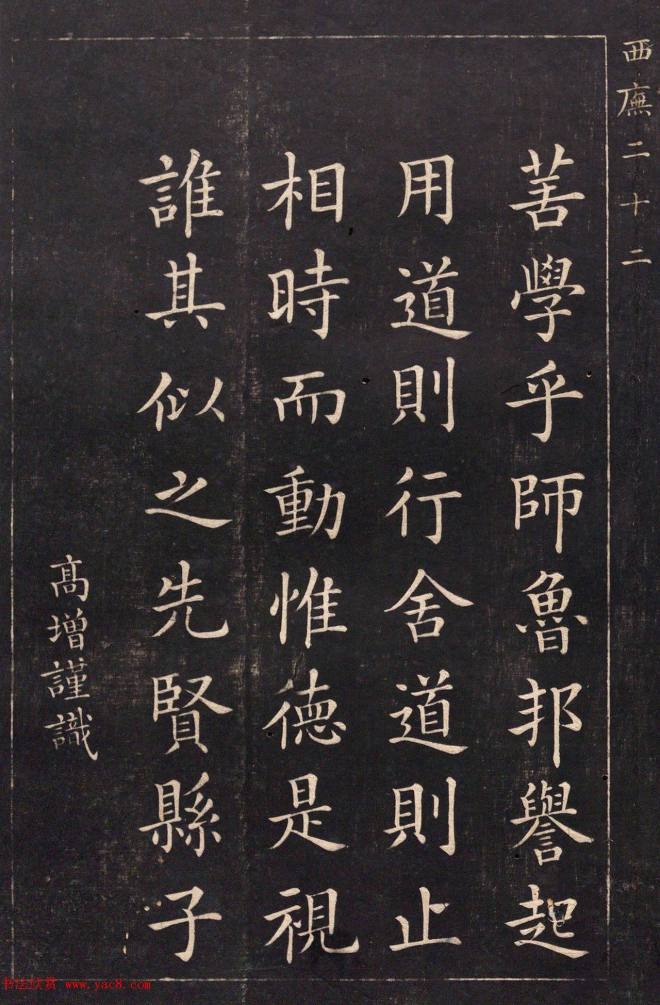 西廡二十二
善學乎師魯邦譽起
用道則行舍道則止
相時而動惟德是視
誰其似之先賢縣子
高增謹識
书法欣赏 www.yac8.com